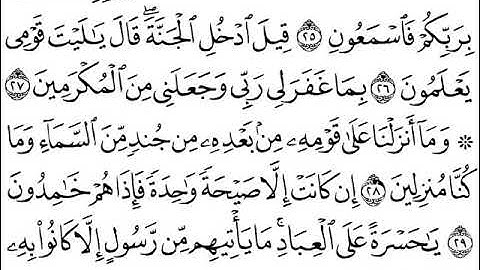 بِرَبِّكُمْ فَٱسْمَعُونِ ٢٥ قِيلَ ٱدْخُلِ ٱلْجَنَّةَ ۖ قَالَ يَـٰلَيْتَ قَوْمِى
يَعْلَمُونَ ٢٦ بِمَا غَفَرَ لِى رَبِّى وَجَعَلَنِى مِنَ ٱلْمُكْرَمِينَ ٢٧
۞ وَمَآ أَنزَلْنَا عَلَىٰ قَوْمِهِۦ مِنۢ بَعْدِهِۦ مِن جُندٍ مِّنَ ٱلسَّمَآءِ وَمَا
كُنَّا مُنزِلِينَ ٢٨ إِن كَانَتْ إِلَّا صَيْحَةً وَٰحِدَةً فَإِذَا هُمْ خَـٰمِدُونَ
٢٩ يَـٰحَسْرَةً عَلَى ٱلْعِبَادِ ۚ مَا يَأْتِيهِم مِّن رَّسُولٍ إِلَّا كَانُوا۟ بِهِۦ